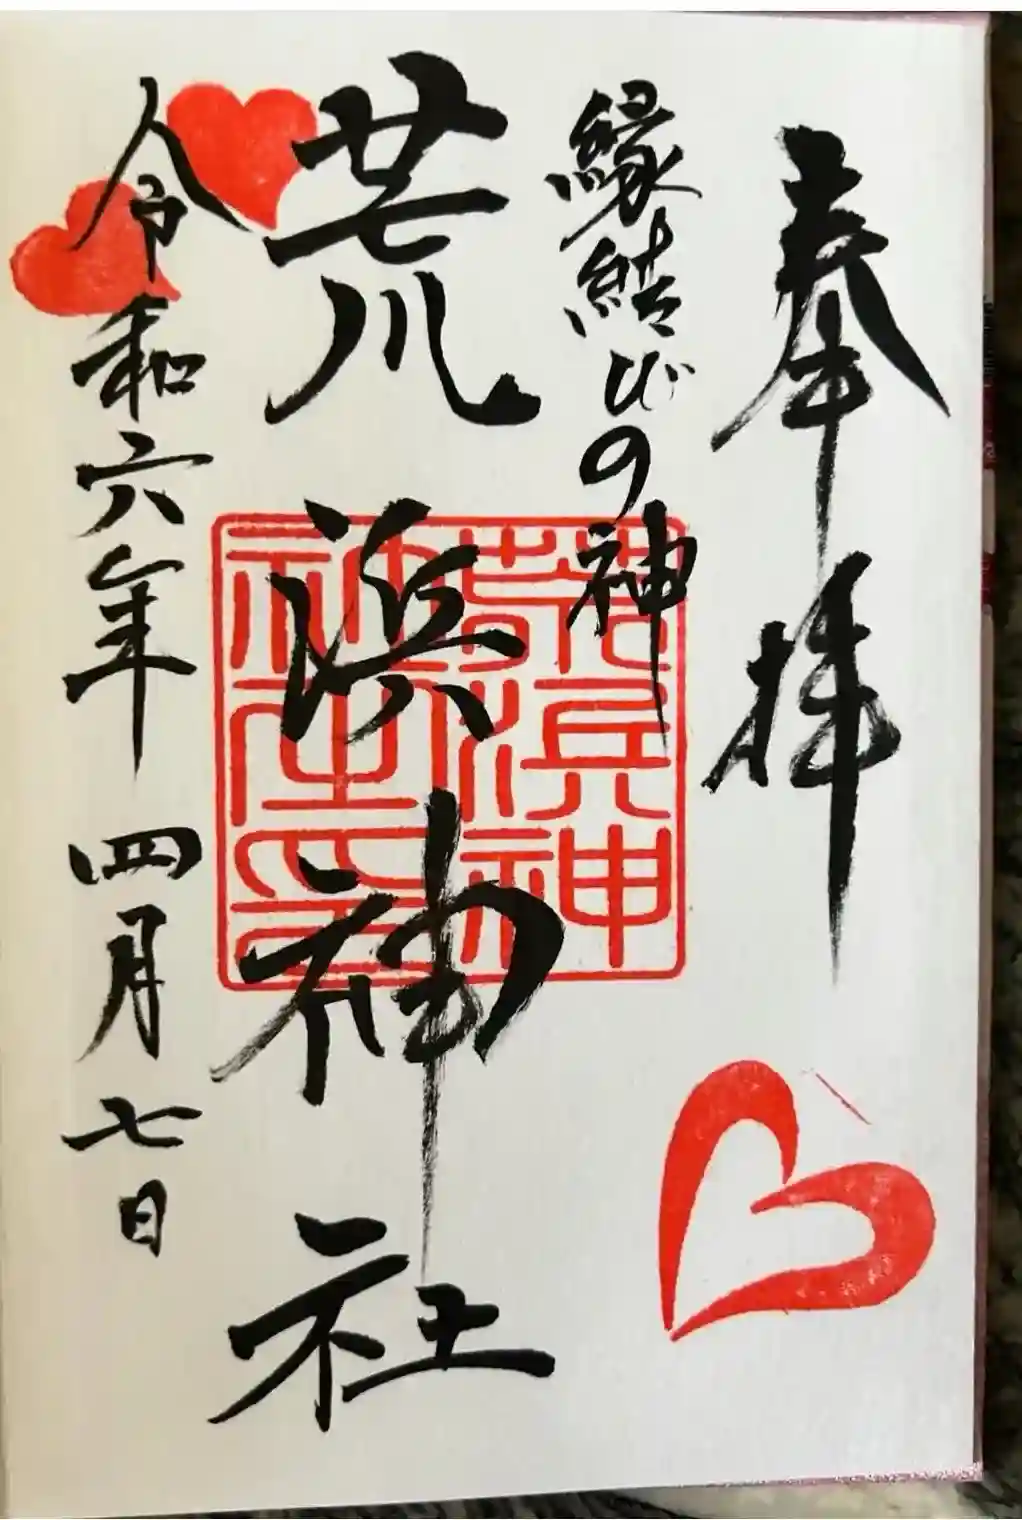 奉拝
縁結びの神
荒浜神社
令和六年四月七日